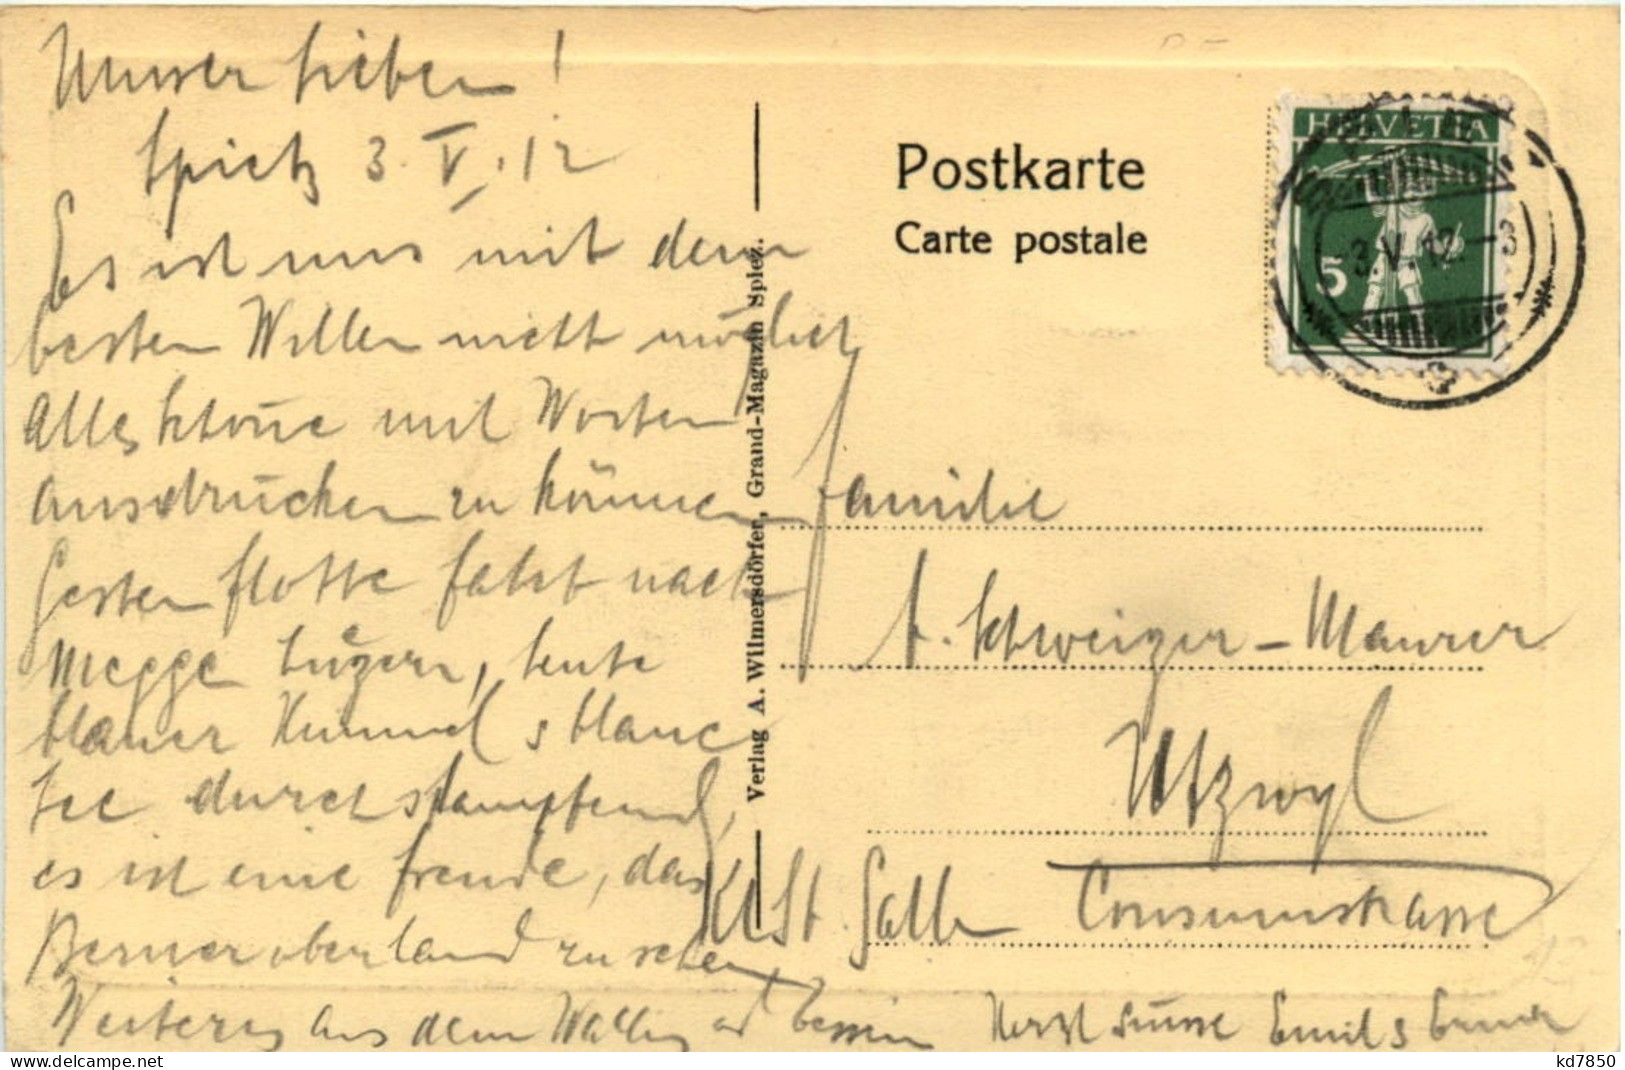 Unsere Lieben!
Spietz 3. V. 12
Es ist uns mit dem
besten Willen nicht möglich
Alles Schöne mit Worten
ausdrücken zu können
Gestern flotte fahrt nach
Megge Luzern, heute
blauer Himmel & blaue
See durchstampfend,
es ist eine freude, das
Berneroberland zu sehen
Weiteres aus dem Wallis
Herzl Grüsse Emil &
Verlag A. Willmersdörfer, Grand-Magazin Spiez.
Postkarte
Carte postale
HELVETIA
5
3.V.12.-3
Familie
A. Schweizer-Maurer
Utzwyl
Kt St. Gallen Consumstrasse
kd7850